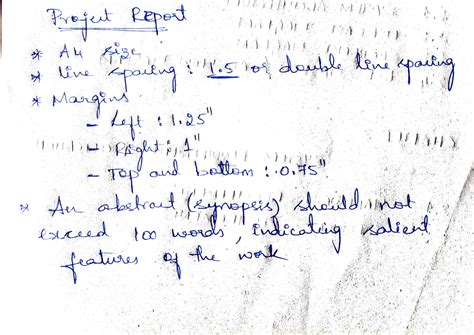 Project Report
* A4 size
* line spacing : 1.5 or double line spacing
* Margins
- Left : 1.25"
- Right : 1"
- Top and bottom : 0.75"
* An abstract (synopsis) should not
exceed 100 words, indicating salient
features of the work